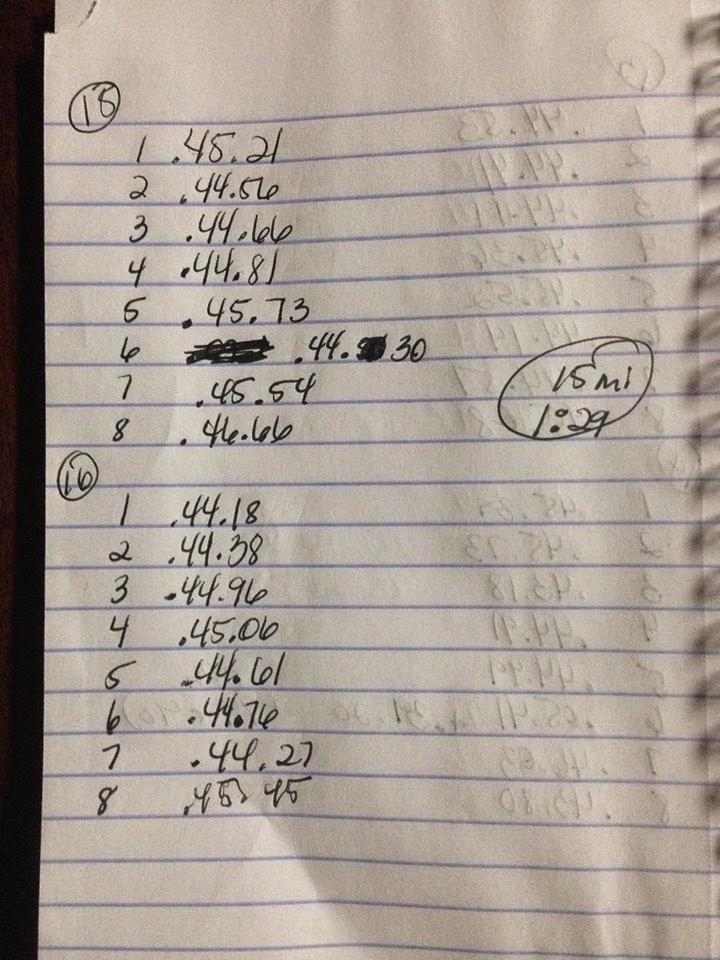 15
1 .45.21
2 .44.56
3 .44.66
4 .44.81
5 .45.73
6 .44.30
7 .45.54
8 .46.66
15 mi
1:29
16
1 .44.18
2 .44.38
3 .44.96
4 .45.06
5 .44.61
6 .44.76
7 .44.27
8 .45.45